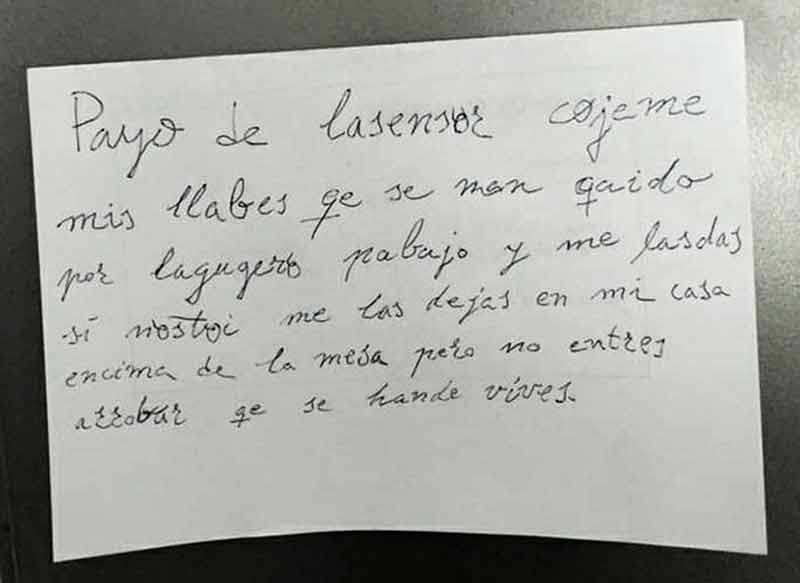 Payo de lasensor cojeme
mis llabes qe se man qaido
por lagugero pabajo y me lasdas
si nostoi me las dejas en mi casa
encima de la mesa pero no entres
arrobar qe se hande vives.